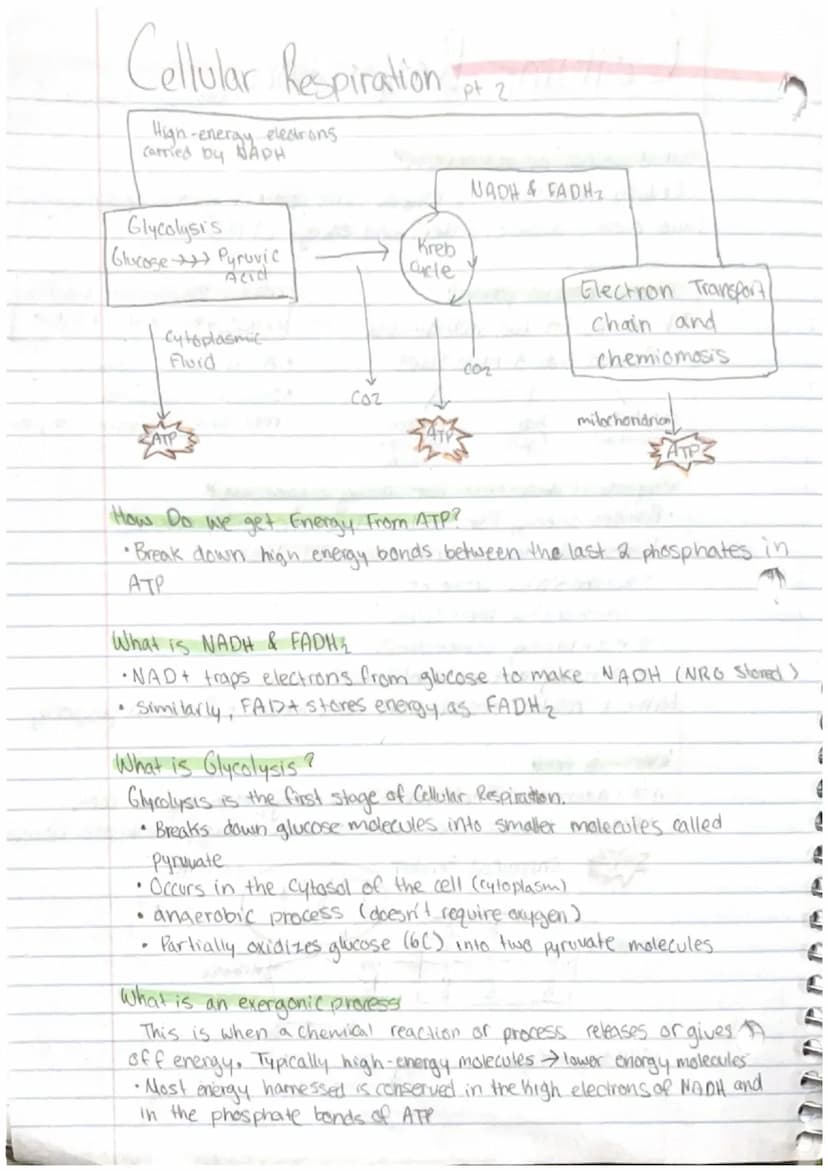 Cellular Respiration pt 2
High-energy electrons
carried by NADH
NADH & FADH2
Glycolysis
Glucose →→→ Pyruvic
Acid
Kreb
Cycle
Electron Transport
Chain and
chemiomosis
Cytoplasmic
Fluid
CO2
CO2
mitochondrion
ATP
ATP
ATP
How Do we get Energy From ATP?
• Break down high energy bonds between the last 2 phosphates in
ATP
What is NADH & FADH2
• NAD+ traps electrons from glucose to make NADH (NRG Stored)
• Similarly, FAD+ stores energy as FADH2
What is Glycolysis?
Glycolysis is the first stage of Cellular Respiration.
• Breaks down glucose molecules into smaller molecules called
pyruvate
• Occurs in the cytosol of the cell (cytoplasm)
• anaerobic process (doesn't require oxygen)
• Partially oxidizes glucose (6C) into two pyruvate molecules
What is an exergonic process
This is when a chemical reaction or process releases or gives
off energy. Typically high-energy molecules → lower energy molecules
• Most energy harnessed is conserved in the high electrons of NADH and
in the phosphate bonds of ATP